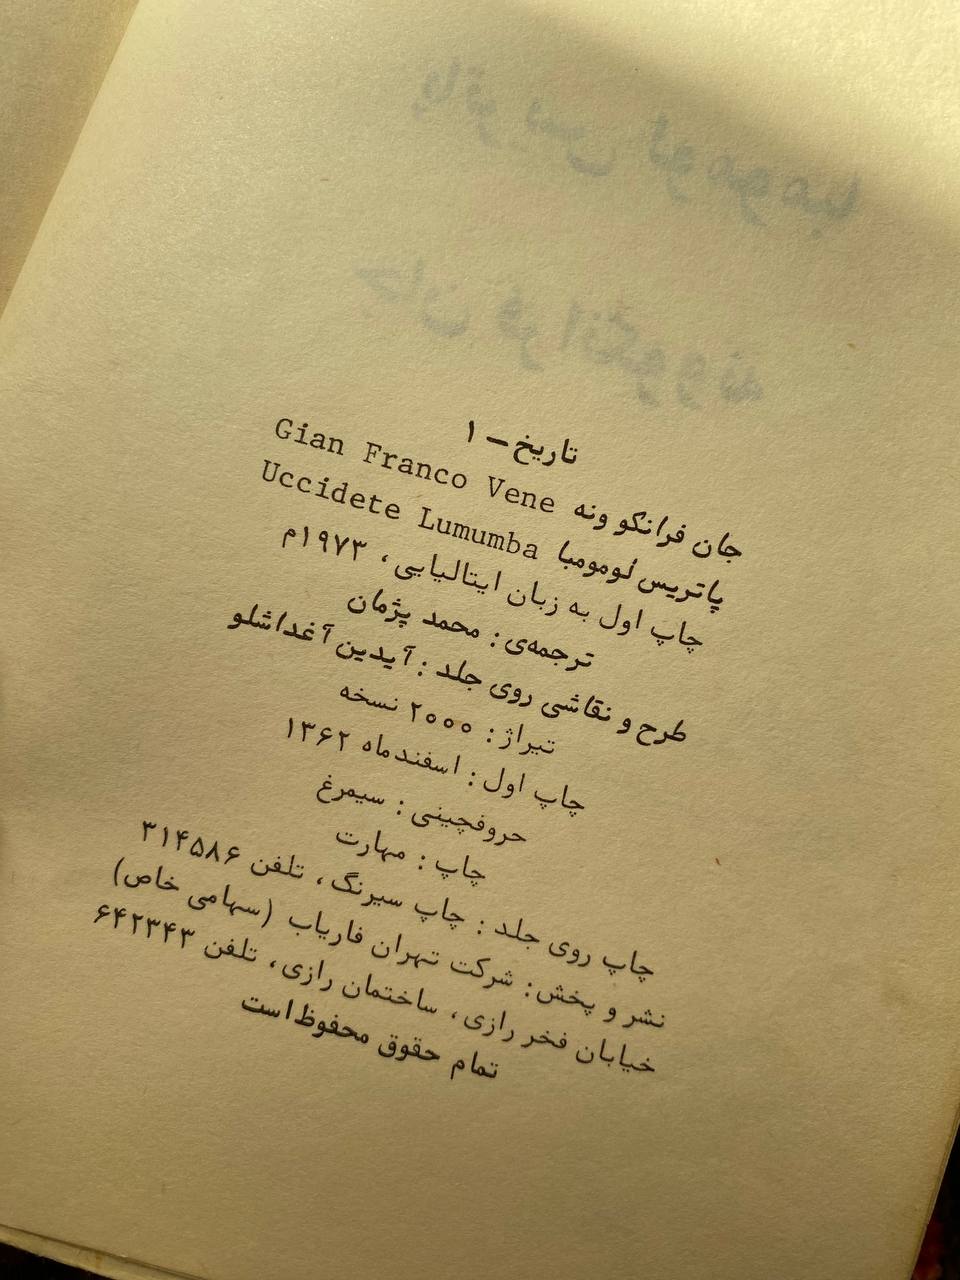 پاتریس لومومبا
جان فرانکو ونه
تاریخ – ۱
جان فرانکو ونه Gian Franco Vene
پاتریس لومومبا Uccidete Lumumba
چاپ اول به زبان ایتالیایی، ۱۹۷۳م
ترجمه‌ی: محمد پژمان
طرح و نقاشی روی جلد: آیدین آغداشلو
تیراژ: ۲۰۰۰ نسخه
چاپ اول: اسفندماه ۱۳۶۲
حروفچینی: سیمرغ
چاپ: مهارت
چاپ روی جلد: چاپ سیرنگ، تلفن ۳۱۴۵۸۶
نشر و پخش: شرکت تهران فاریاب (سهامی خاص)
خیابان فخر رازی، ساختمان رازی، تلفن ۶۴۲۳۴۳
تمام حقوق محفوظ است